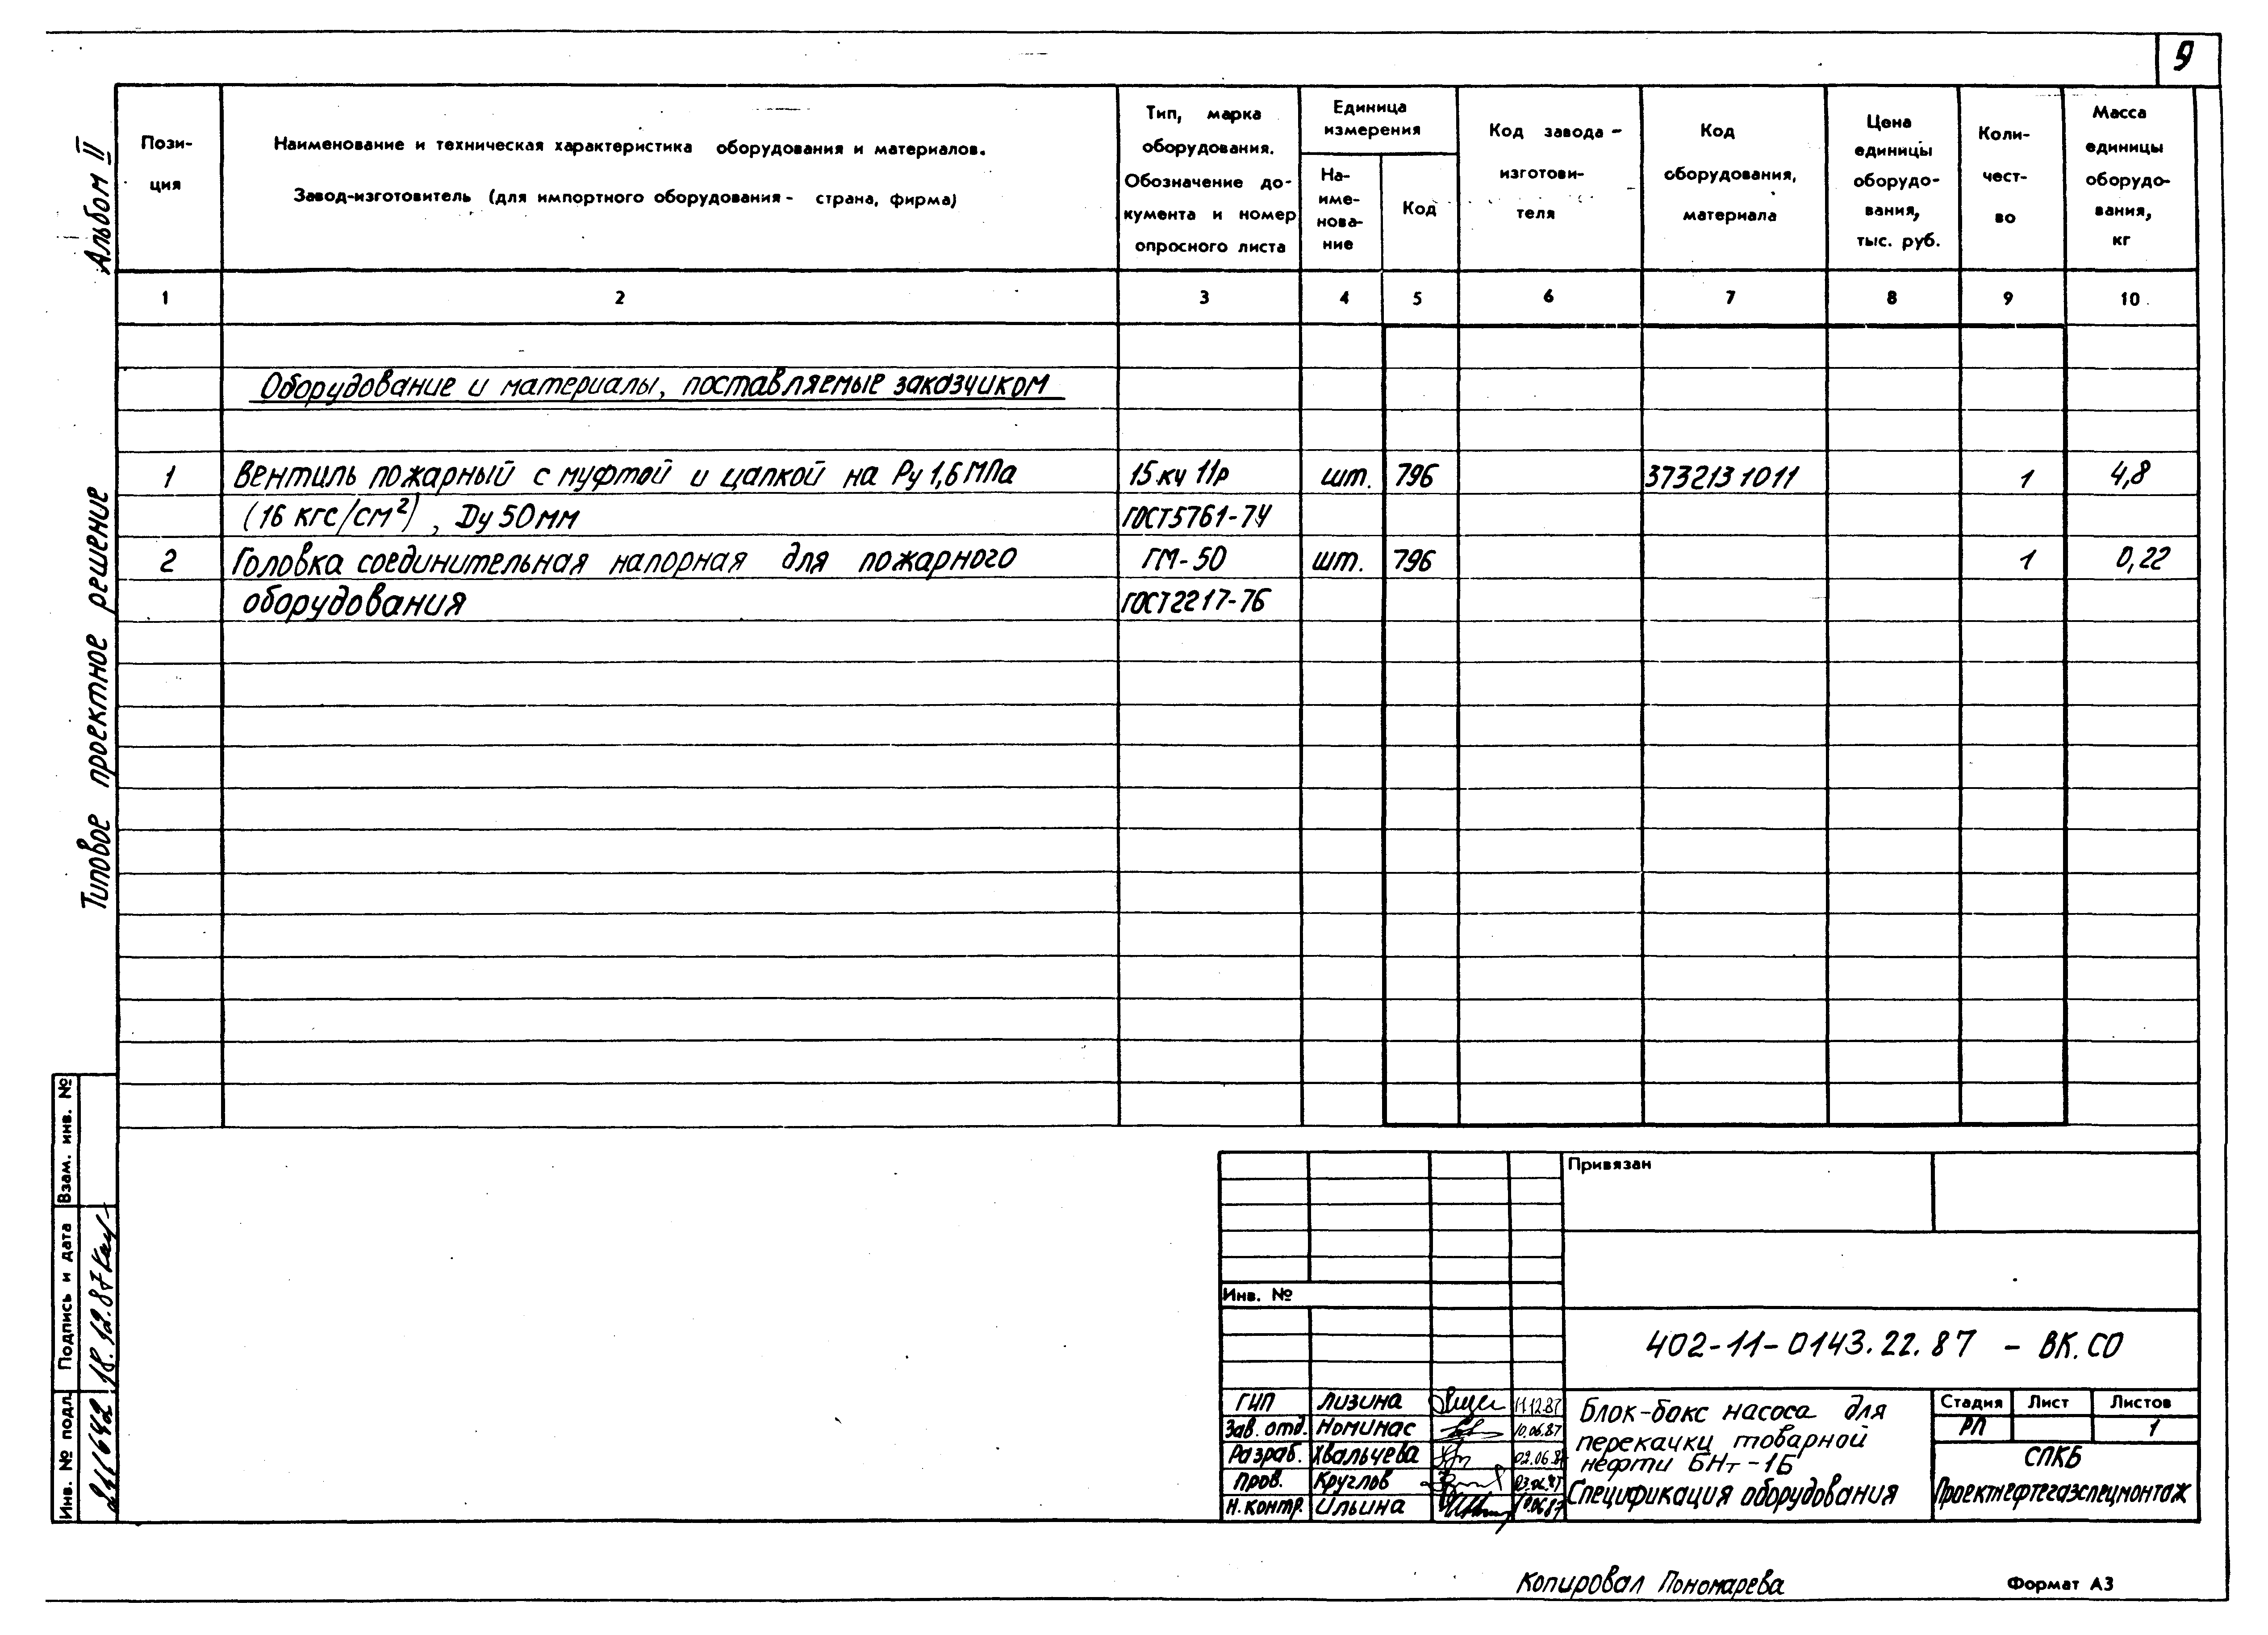 9
Альбом II
Типовое проектное решение
Пози-
ция
Наименование и техническая характеристика оборудования и материалов.
Завод-изготовитель (для импортного оборудования - страна, фирма)
Тип, марка
оборудования.
Обозначение до-
кумента и номер
опросного листа
Единица
измерения
На-
име-
нова-
ние
Код
Код завода -
изготови-
теля
Код
оборудования,
материала
Цена
единицы
оборудо-
вания,
тыс. руб.
Коли-
чест-
во
Масса
единицы
оборудо-
вания,
кг
1 2 3 4 5 6 7 8 9 10
Оборудование и материалы, поставляемые заказчиком
1 Вентиль пожарный с муфтой и цапкой на Ру 1,6 МПа 15 кч 11р шт. 796 3732131011 1 4,8
(16 кгс/см²), Dу 50 мм ГОСТ 5761-74
2 Головка соединительная напорная для пожарного ГМ-50 шт. 796 1 0,22
оборудования ГОСТ 2217-76
Взам. инв. №
Подпись и дата
18.12.87
Инв. № подл.
Привязан
Инв. №
402-11-0143.22.87 - ВК.СО
ГИП Лизина 11.12.87
Зав. отд. Номинас 10.06.87
Разраб. Хвальчева 02.06.87
Пров. Круглов
Н. контр. Ильина
Блок-бокс насоса для
перекачки товарной
нефти БНт-1Б
Спецификация оборудования
Стадия Лист Листов
РП 1
СПКБ
Проектнефтегазспецмонтаж
Копировал Пономарева
Формат А3